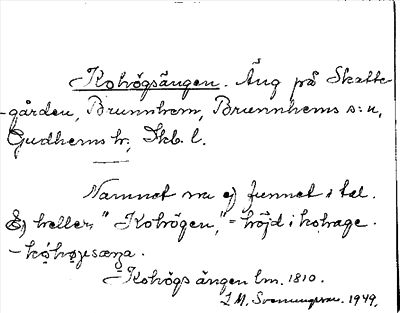 Kohögsängen. Äng på Skatte-
-gården, Brunnhem, Brunnhems s:n,
Gudhems hd, Skb. l.
Namnet nu ej funnet i tal.
Ej heller "Kohögen," = höjd i kohage.
- kóhøɟsæŋa.
- Kohögsängen lm. 1810.
I. M. Svenungsson. 1949.